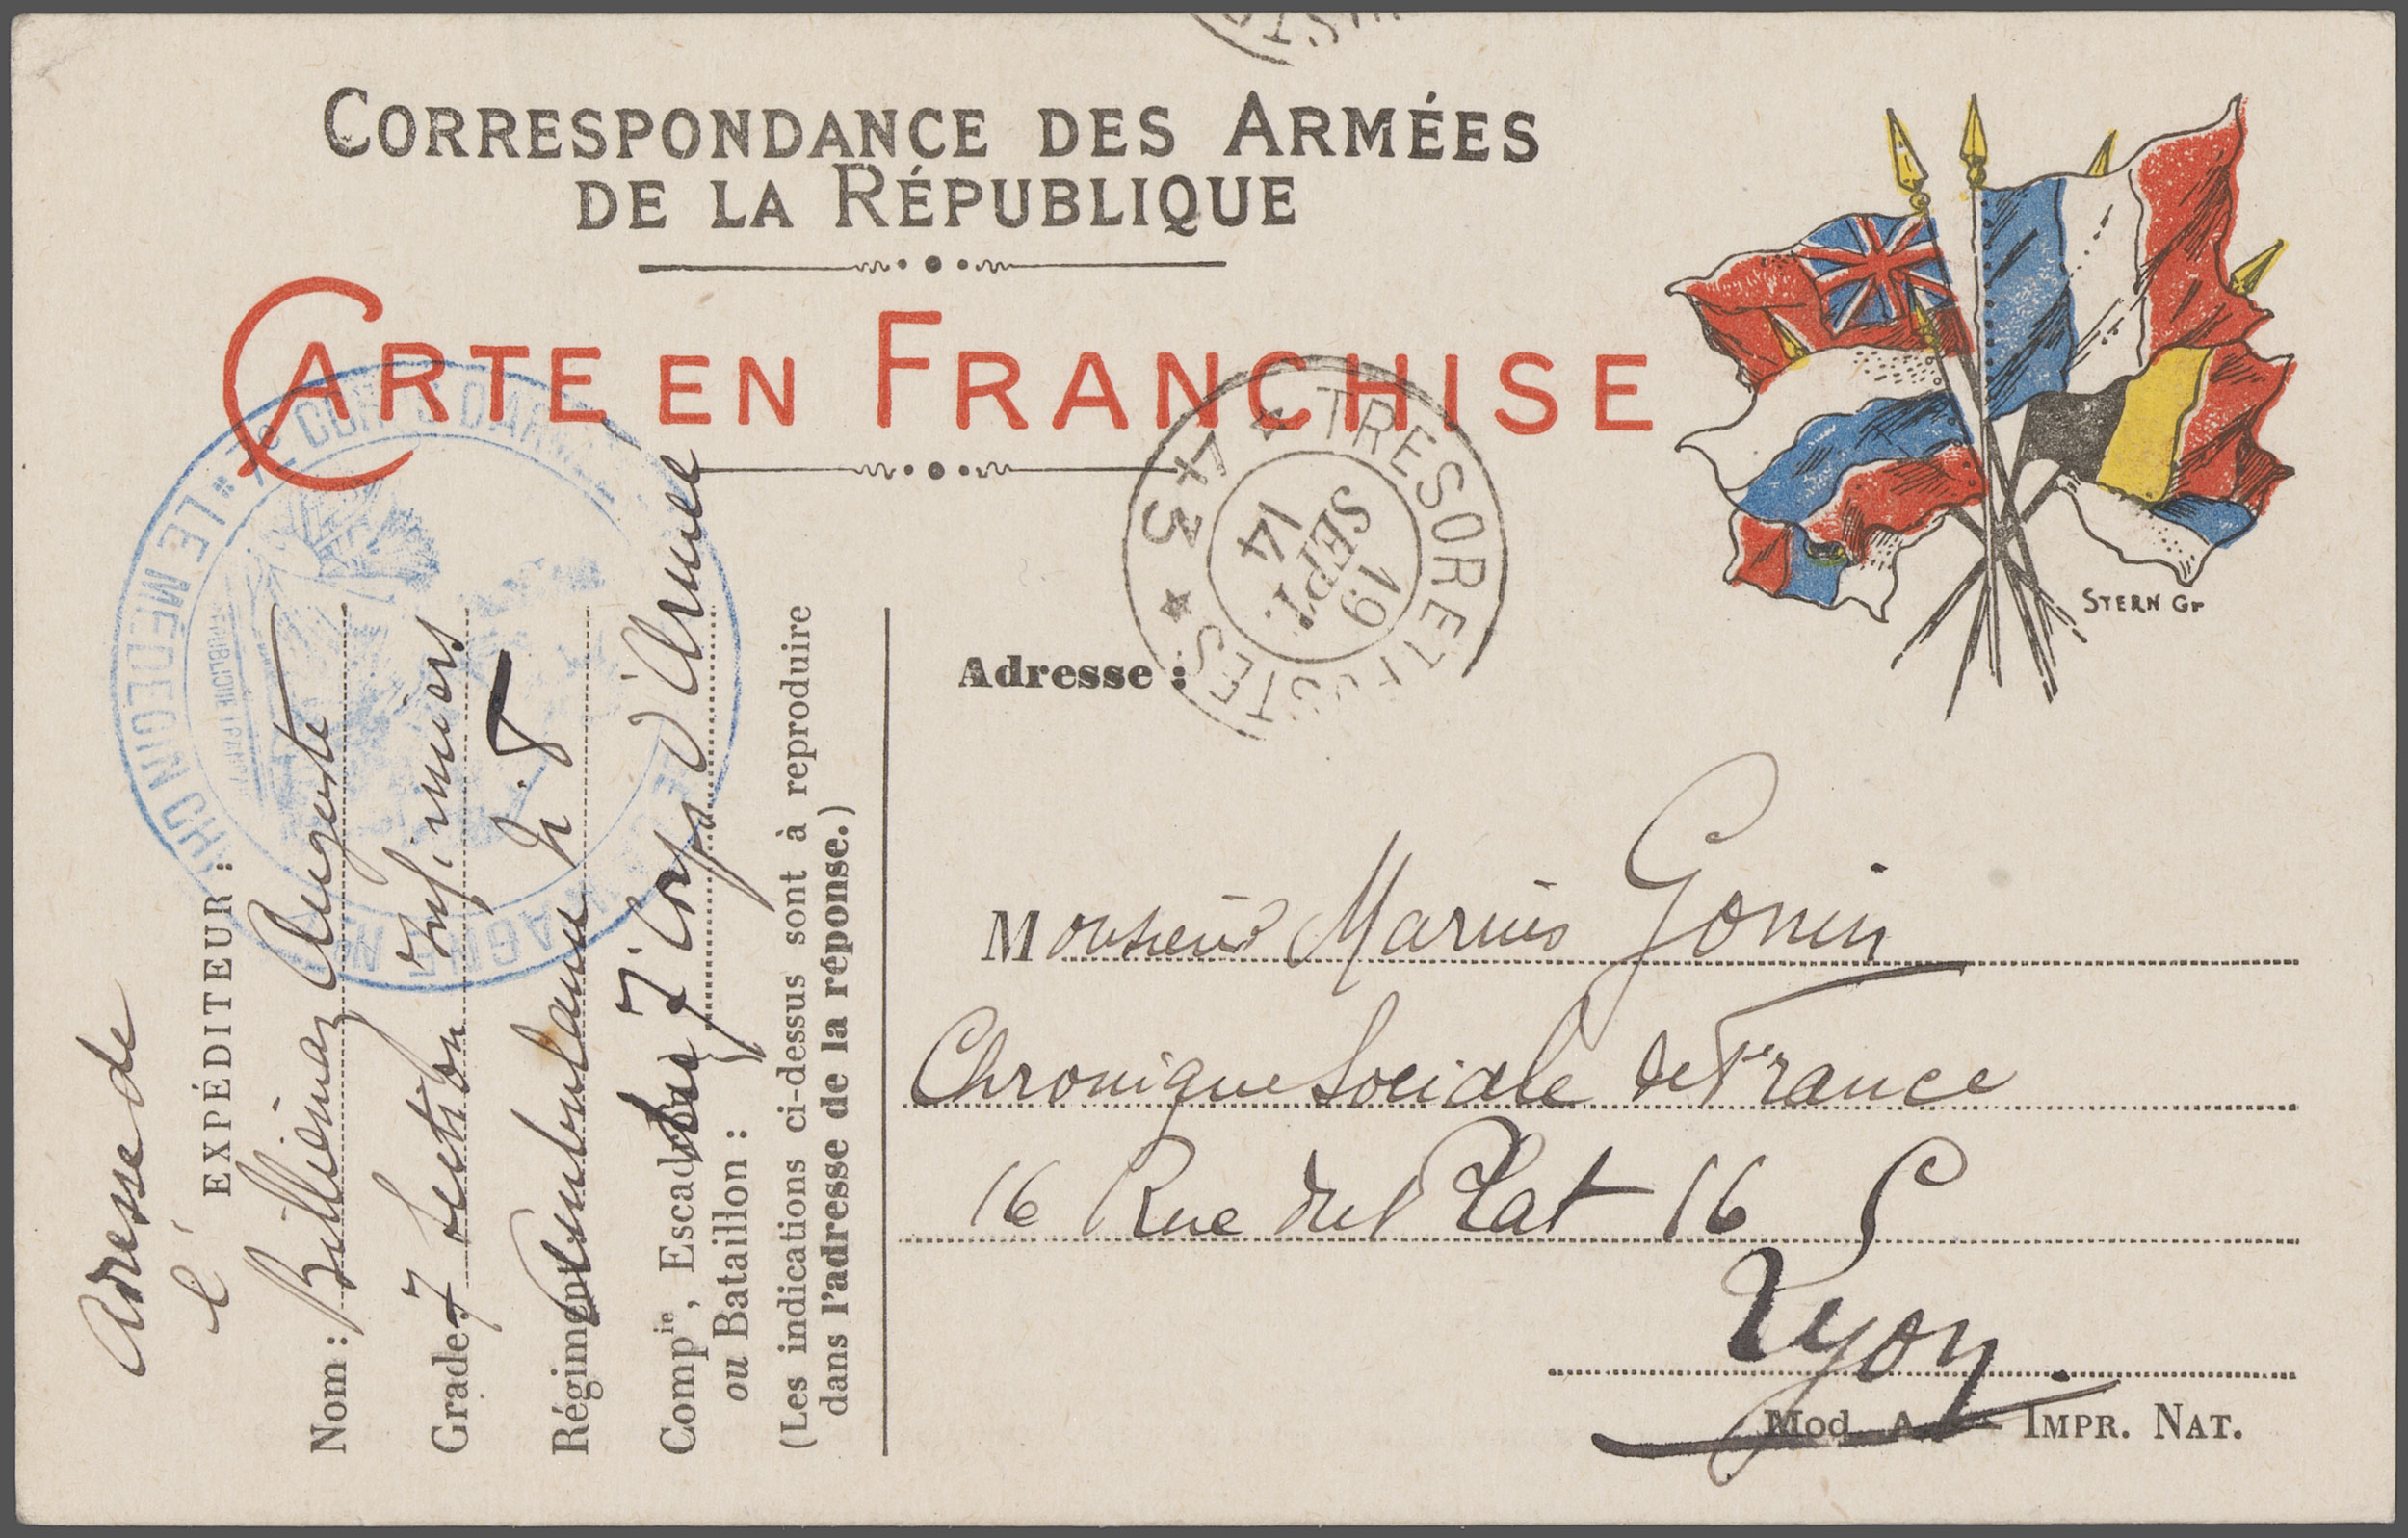 CORRESPONDANCE DES ARMÉES
DE LA RÉPUBLIQUE
CARTE EN FRANCHISE
TRESOR ET POSTES
★ 43 ★
19
SEPT.
14
STERN Gr
Adresse :
Monsieur Marius Gonin
Chronique Sociale de France
16 Rue du Plat 16
Lyon
Mod. A. — IMPR. NAT.
Adresse de
l'
EXPÉDITEUR :
Nom : Billiémaz Auguste
Grade 7 Section Infirmiers
Régiment Ambulance N. 8
Compie, Escadron 7 Corps d'Armée
ou Bataillon :
(Les indications ci-dessus sont à reproduire
dans l'adresse de la réponse.)
7E CORPS D'ARMÉE
LE MÉDECIN CH